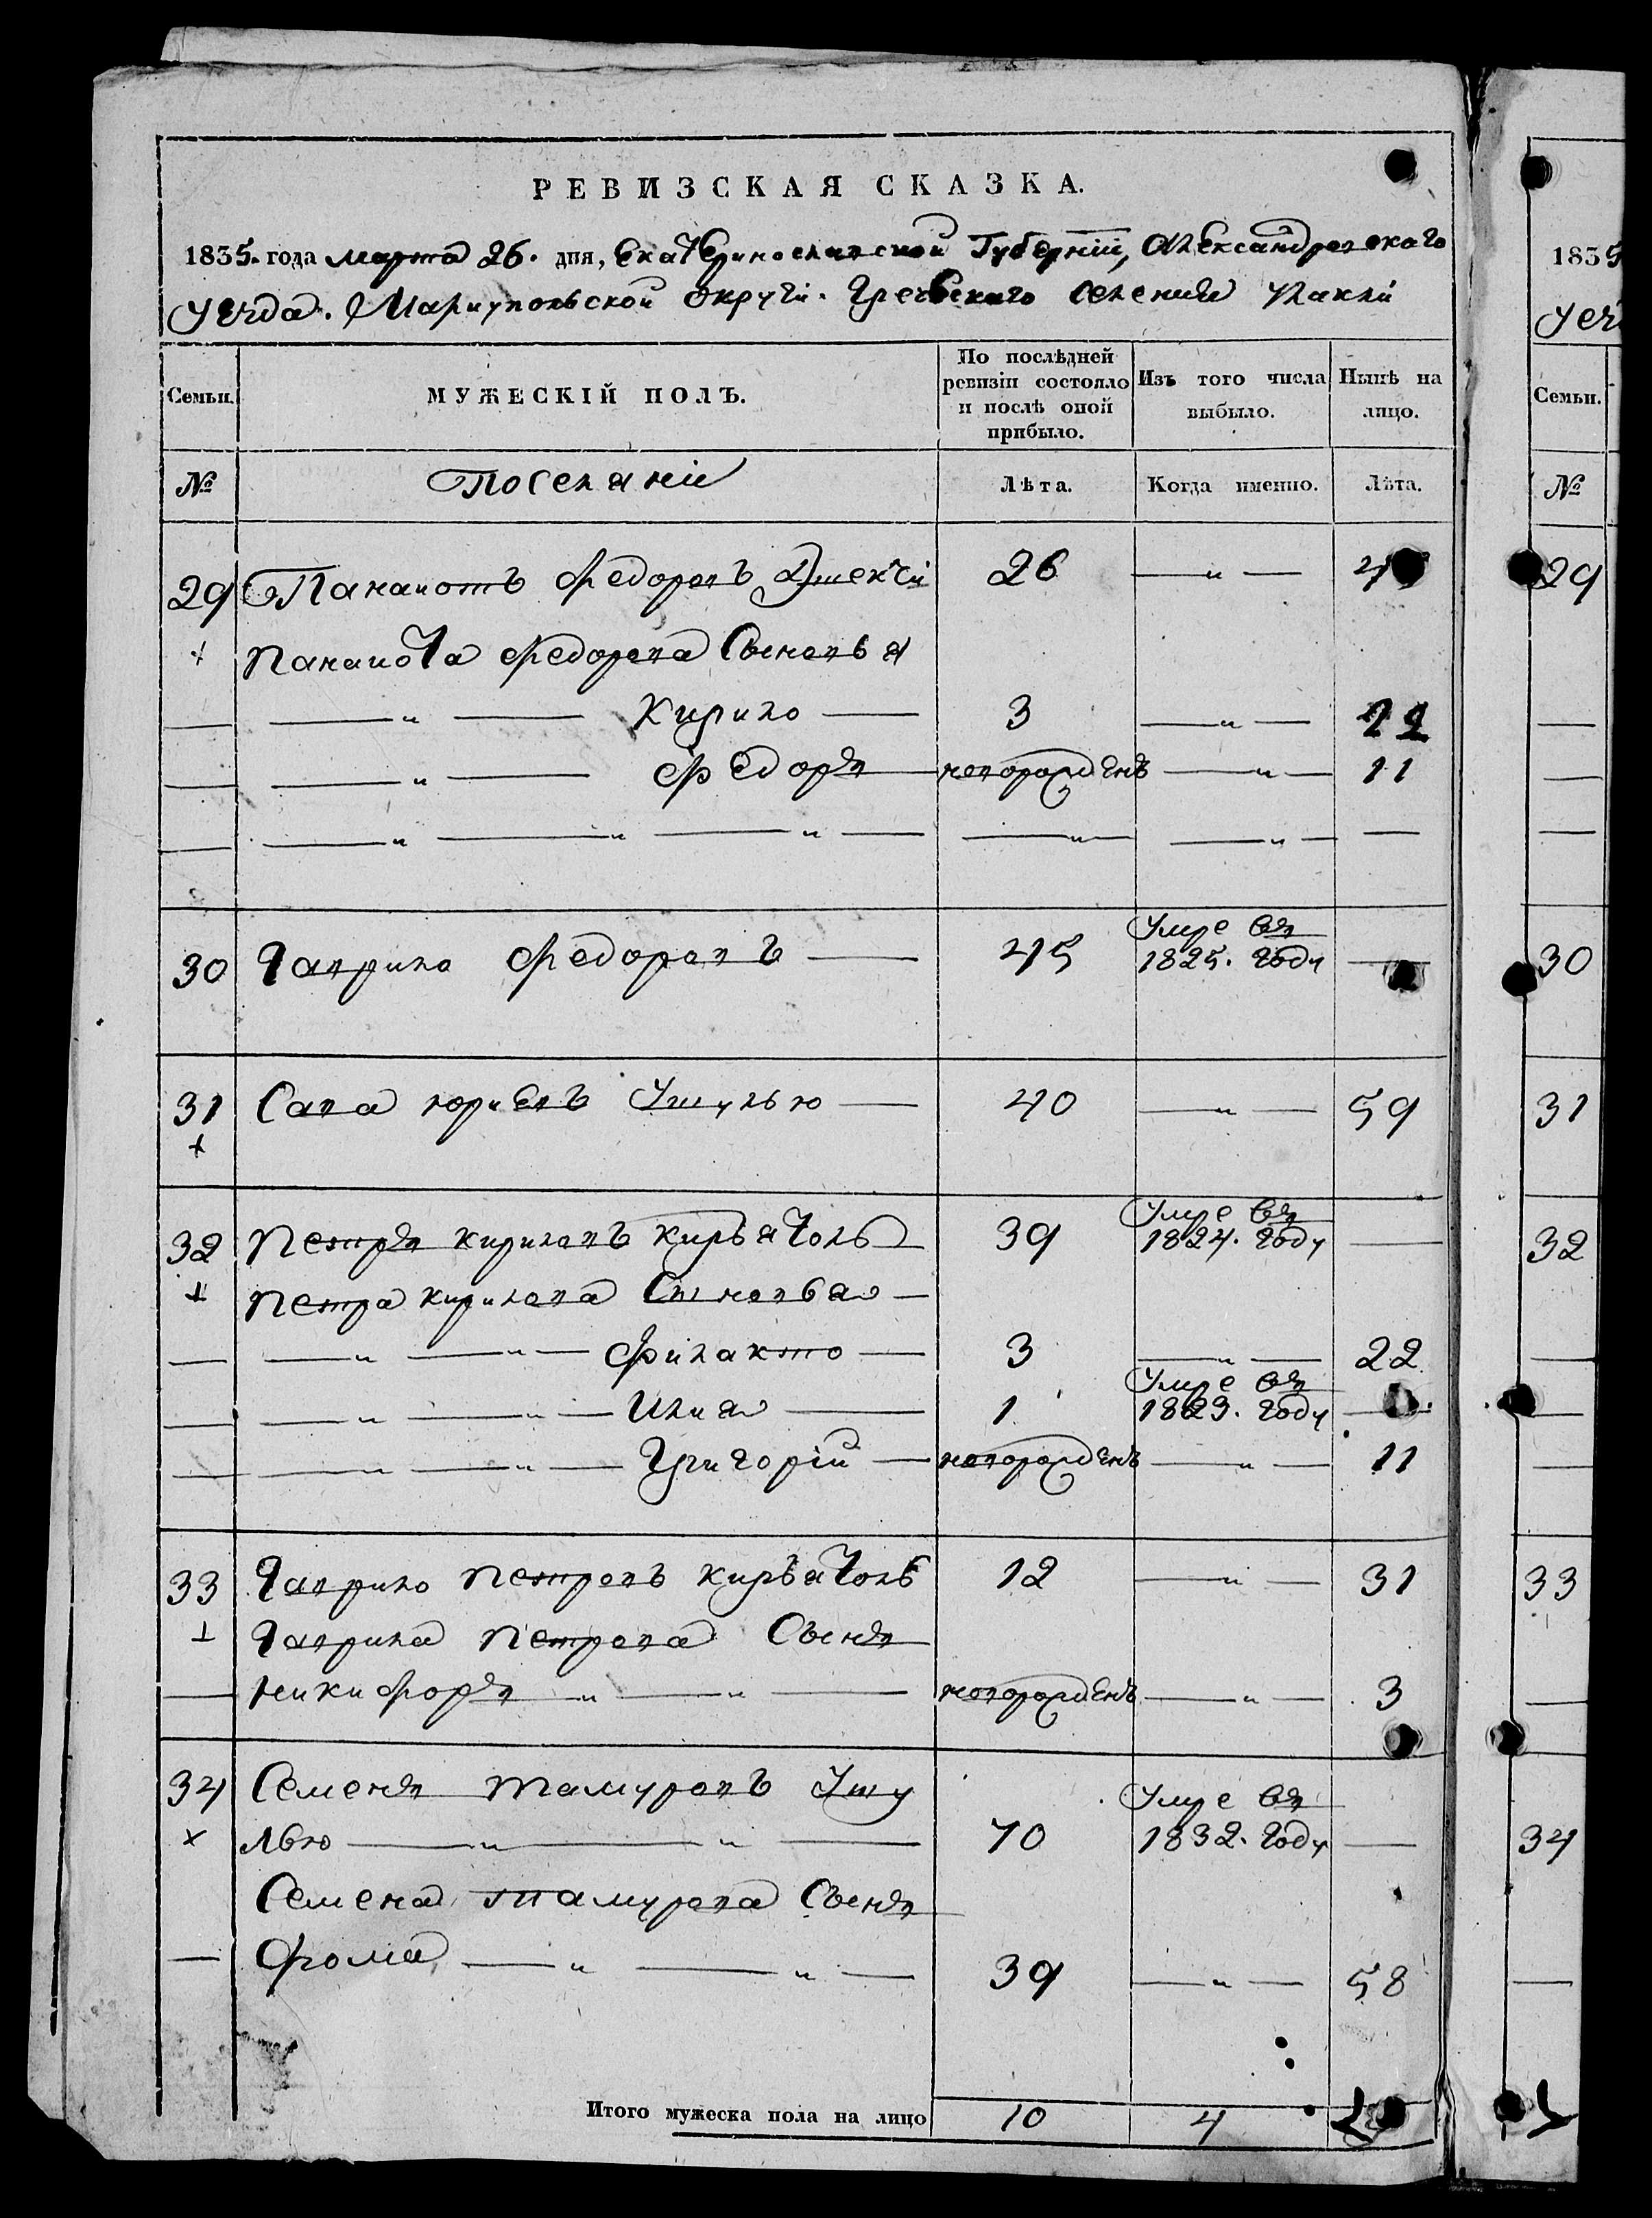 РЕВИЗСКАЯ СКАЗКА.
1835. года марта 26. дня, Екатеринославской Губерніи, Александровскаго
уезда. Мариупольской округи. Греческаго селения
Семьи. МУЖЕСКІЙ ПОЛЪ. По послѣдней ревизіи состояло и послѣ оной прибыло. Изъ того числа выбыло. Нынѣ на лицо.
№ Поселяніе Лѣта. Когда именно. Лѣта.
29 Панаиотъ Федоровъ 26 — „ — 4
+ Панаиота Федорова Сыновья
— — „ — Кирило — 3 — „ — 22
— — „ — Федоръ новорожденъ — „ — 11
— — „ — „ — „ — — „ — — „ — —
30 Гаврило Федоровъ — 45 Умре въ 1825. году —
31 Сава Юрьевъ — 40 — „ — 59
+
32 Петръ Кириловъ Кирьятоль 39 Умре въ 1824. году —
+ Петра Кирилова Сыновья —
— — „ — „ — Филакто — 3 — „ — 22
— — „ — „ — Илия — 1 Умре въ 1823. году —
— — „ — „ — Григорій — новорожденъ — „ — 11
33 Гаврило Петровъ Кирьятоль 12 — „ — 31
+ Гаврила Петрова Сынъ
— Никифоръ — „ — „ — новорожденъ — „ — 3
34 Семенъ Тамуровъ Ушу
× лью — „ — „ — 70 Умре въ 1832. году —
Семена Тамурова Сынъ
— Фома — „ — „ — 39 — „ — 58
Итого мужеска пола на лицо 10 4
1835
уез
Семьи.
№
29
30
31
32
33
34